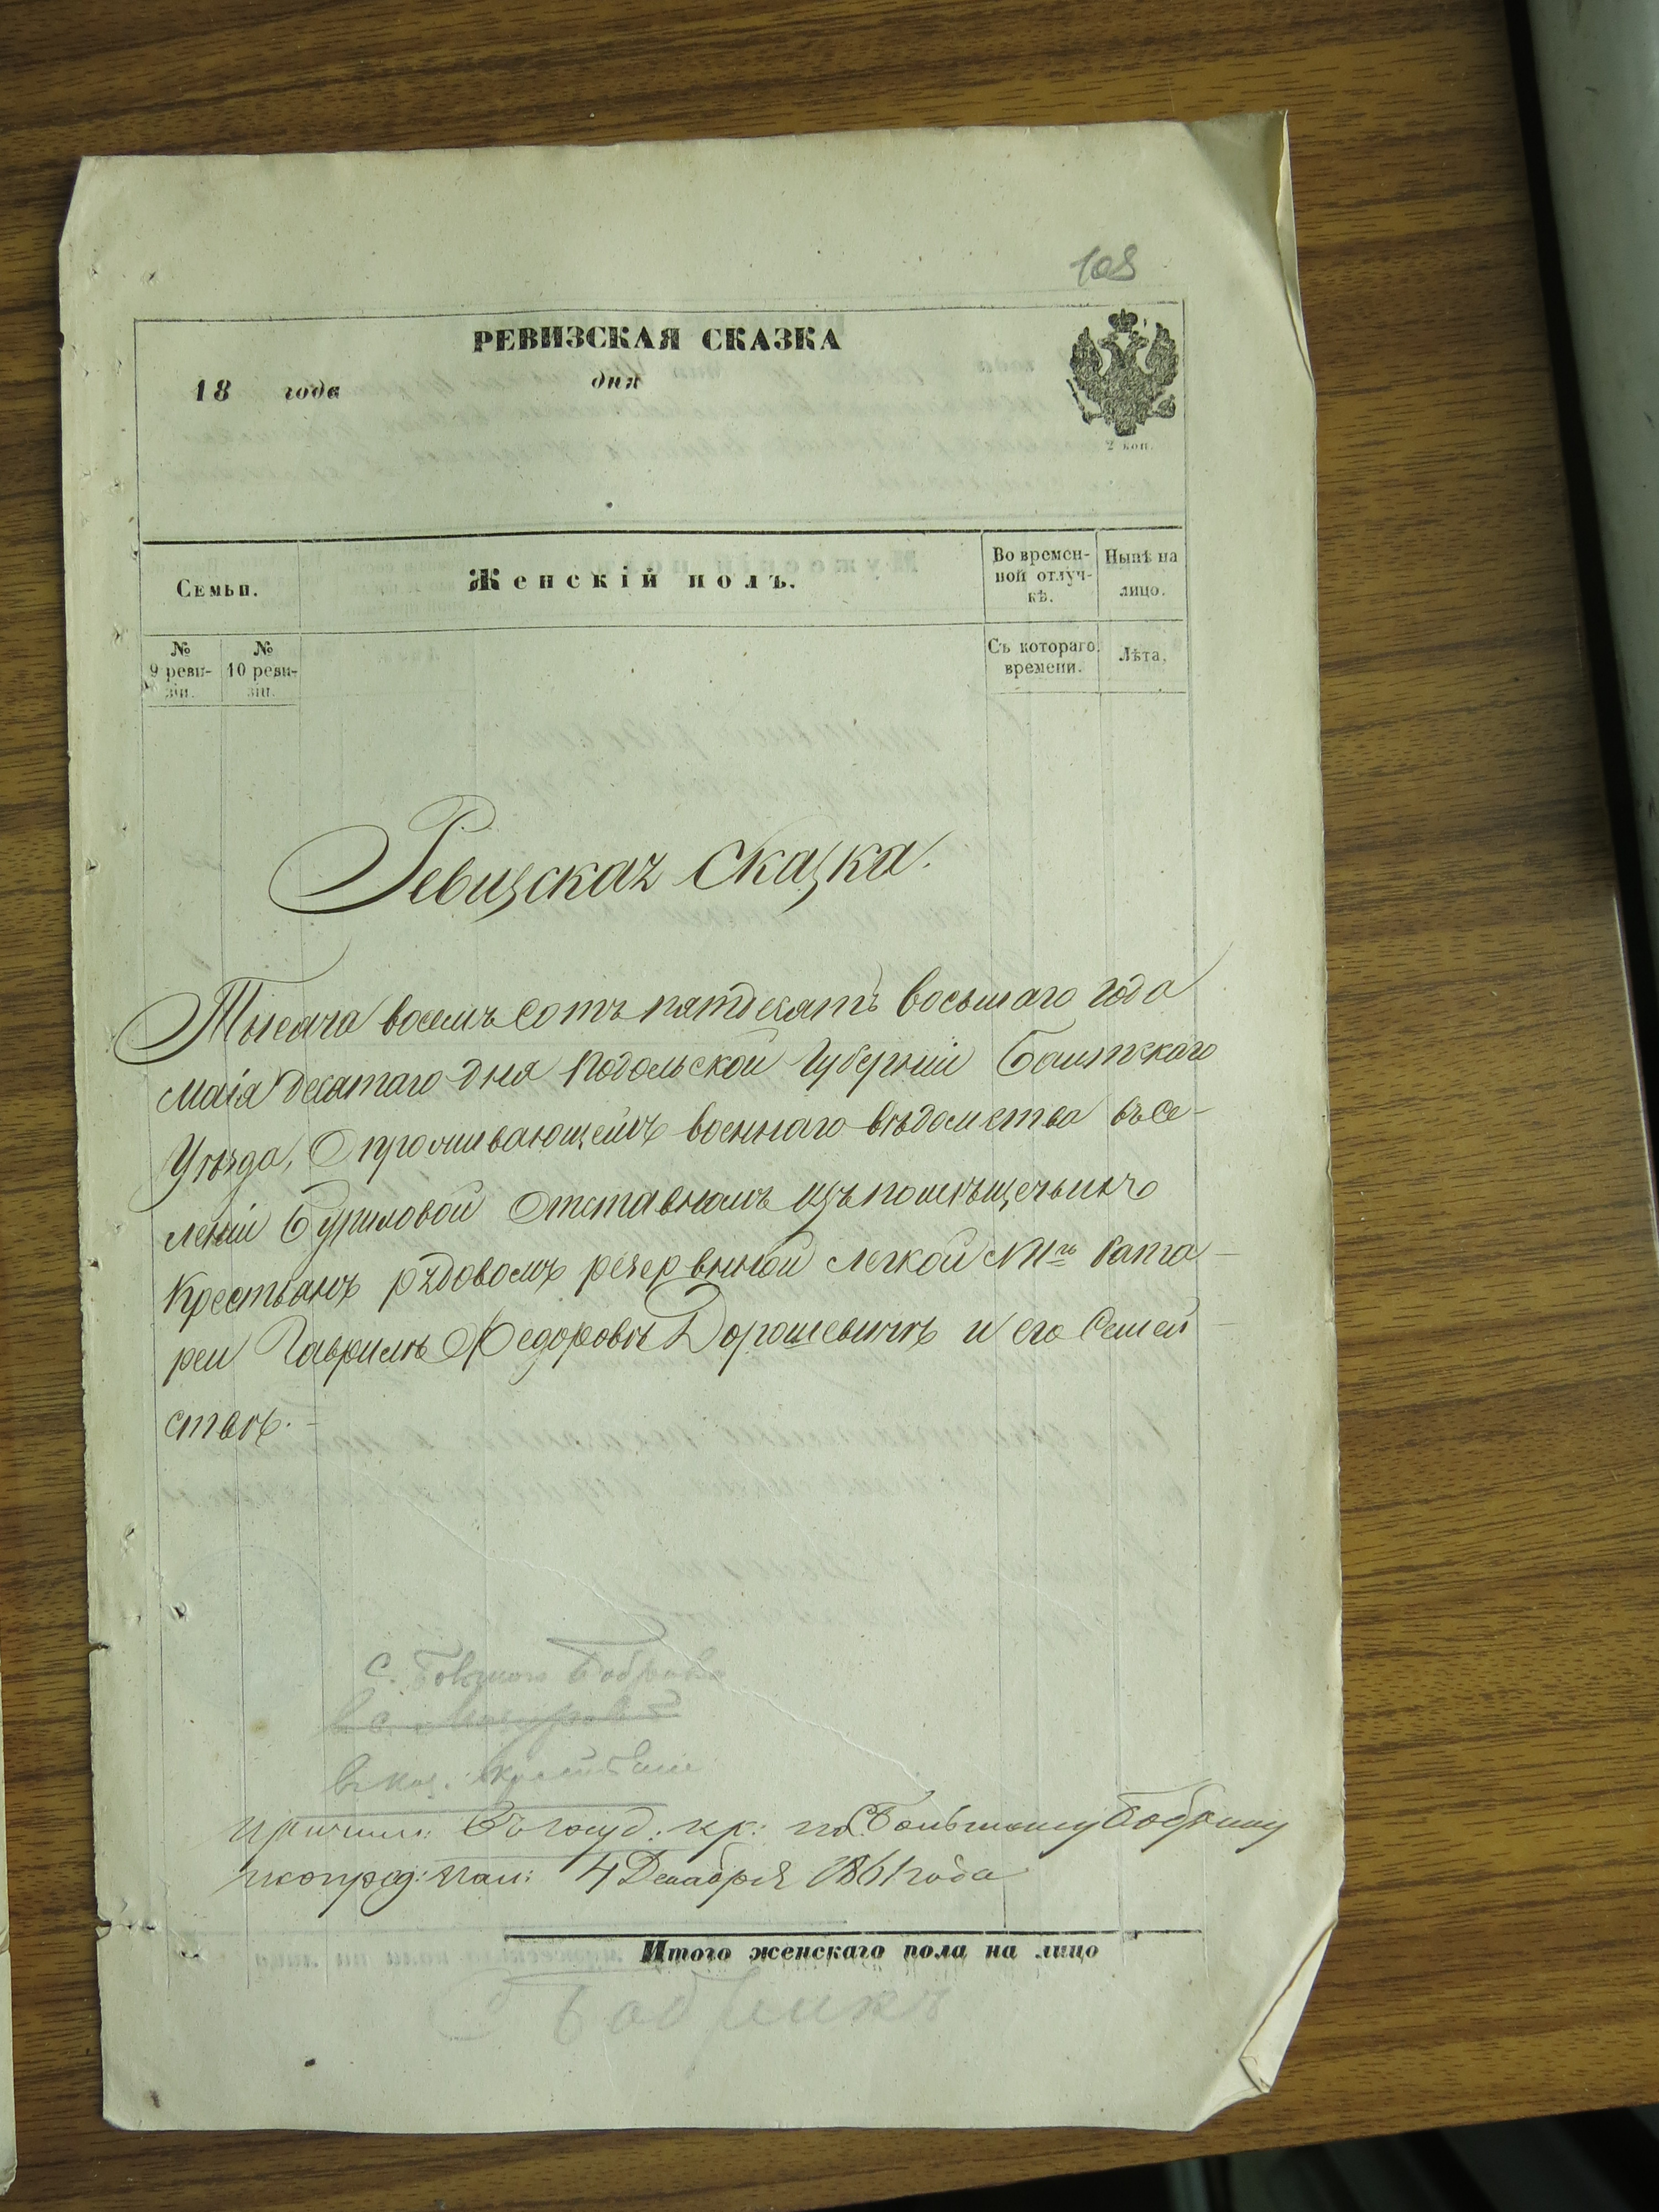 108
РЕВИЗСКАЯ СКАЗКА
18 года дня
2 коп.
Семьи. Женскій полъ. Во времен-ной отлуч-кѣ. Нынѣ на лицо.
№ 9 реви-зіи. № 10 реви-зіи. Съ котораго времени. Лѣта.
Ревизская Сказка.
Тысяча восемь сотъ пятдесятъ восьмаго года
Маія десятаго дня Подольской Губерніи Балтскаго
Уѣзда, О проживающемъ военнаго вѣдомства въ Се-
леніи Буриловой Отставномъ изъ помѣщечьихъ
Крестьянъ рядовомъ резервнной легкой № 11гь Бата-
реи Гаврилѣ Федоровѣ Дорошевичѣ и его Семей-
ствѣ.-
С. Большой Бобрикъ
в каз. крестьяне
причисл: въ госуд: кр: по С. Большому Бобрику
4 Декабря 1861 года
Итого женскаго пола на лицо
Бобрикъ